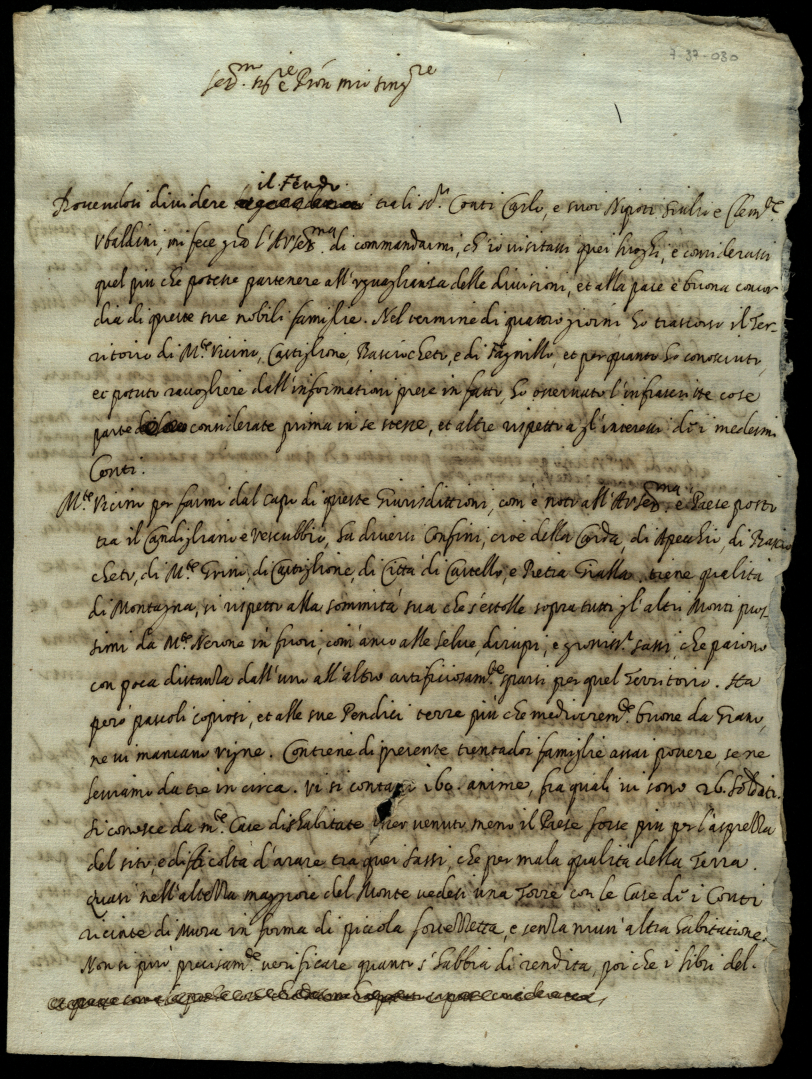 7-37-030
Ser.mo Sig.re e Pron mio sing.re
il Feudo
Dovendosi dividere tra li s.ri Conti Carlo, e suoi Nipoti Giulio e Clem.te
Vbaldini, mi fece già l'A.V.Ser.ma di commandarmi, ch'io visitassi quei luoghi, e considerassi
quel più che potesse partenere all'vguaglianza delle divisioni, et alla pace e buona concor
dia di queste sue nobili famiglie. Nel termine di quattro giorni ho trascorso il Ter-
ritorio di M.te Vicino, Castiglione, Bascrocheto, e di Fagnillo, et per quanto ho conosciuto,
et potuto raccogliere dall'informationi prese in fatto, ho osservato l'infrascritte cose
parte considerate prima in se stesse, et altre rispetto a gl'interessi de i medesmi
Conti.
M.te Vicino per farmi dal capo di queste Giurisdittioni, com'è noto all'A.V.Ser.ma, è Paese posto
tra il Candigliano e Vescubbio, ha diversi Confini, cioè della Carda, di Apecchio, di Bascio
cheto, di M.te Grino, di Castiglione, di Città di Castello, e Pietra Gialla. tiene qualità
di Montagna, si rispetto alla sommità sua che s'estolle sopra tutti gl'altri Monti pros-
simi da M.te Nerone in fuori, com'anco alle selve, dirupi, e grossiss.i sassi, che paiono
con poca distanza dall'uno all'altro artificiosam.te sparsi per quel Territorio. Ha
però pascoli copiosi, et alle sue Pendici terre più che mediocrem.te buone da Grano,
ne vi mancano vigne. Contiene di presente trentadoi famiglie assai povere, se ne
serviamo da tre in circa. Vi si contano 160. anime, fra quali vi sono 26. soldati.
Si conosce da m.te Case dishabitate esser venuto meno il Paese forse più per l'asprezza
del sito, e difficoltà d'arare tra quei sassi, che per mala qualità della Terra.
Quasi nell'altezza maggiore del Monte vedesi una Torre con le Case de i Conti
ricinte di Mura in forma di piccola fortezzetta, e senza niun'altra habitatione.
Non si può precisam.te verificare quanto s'habbia di rendita, poi che i libri del-